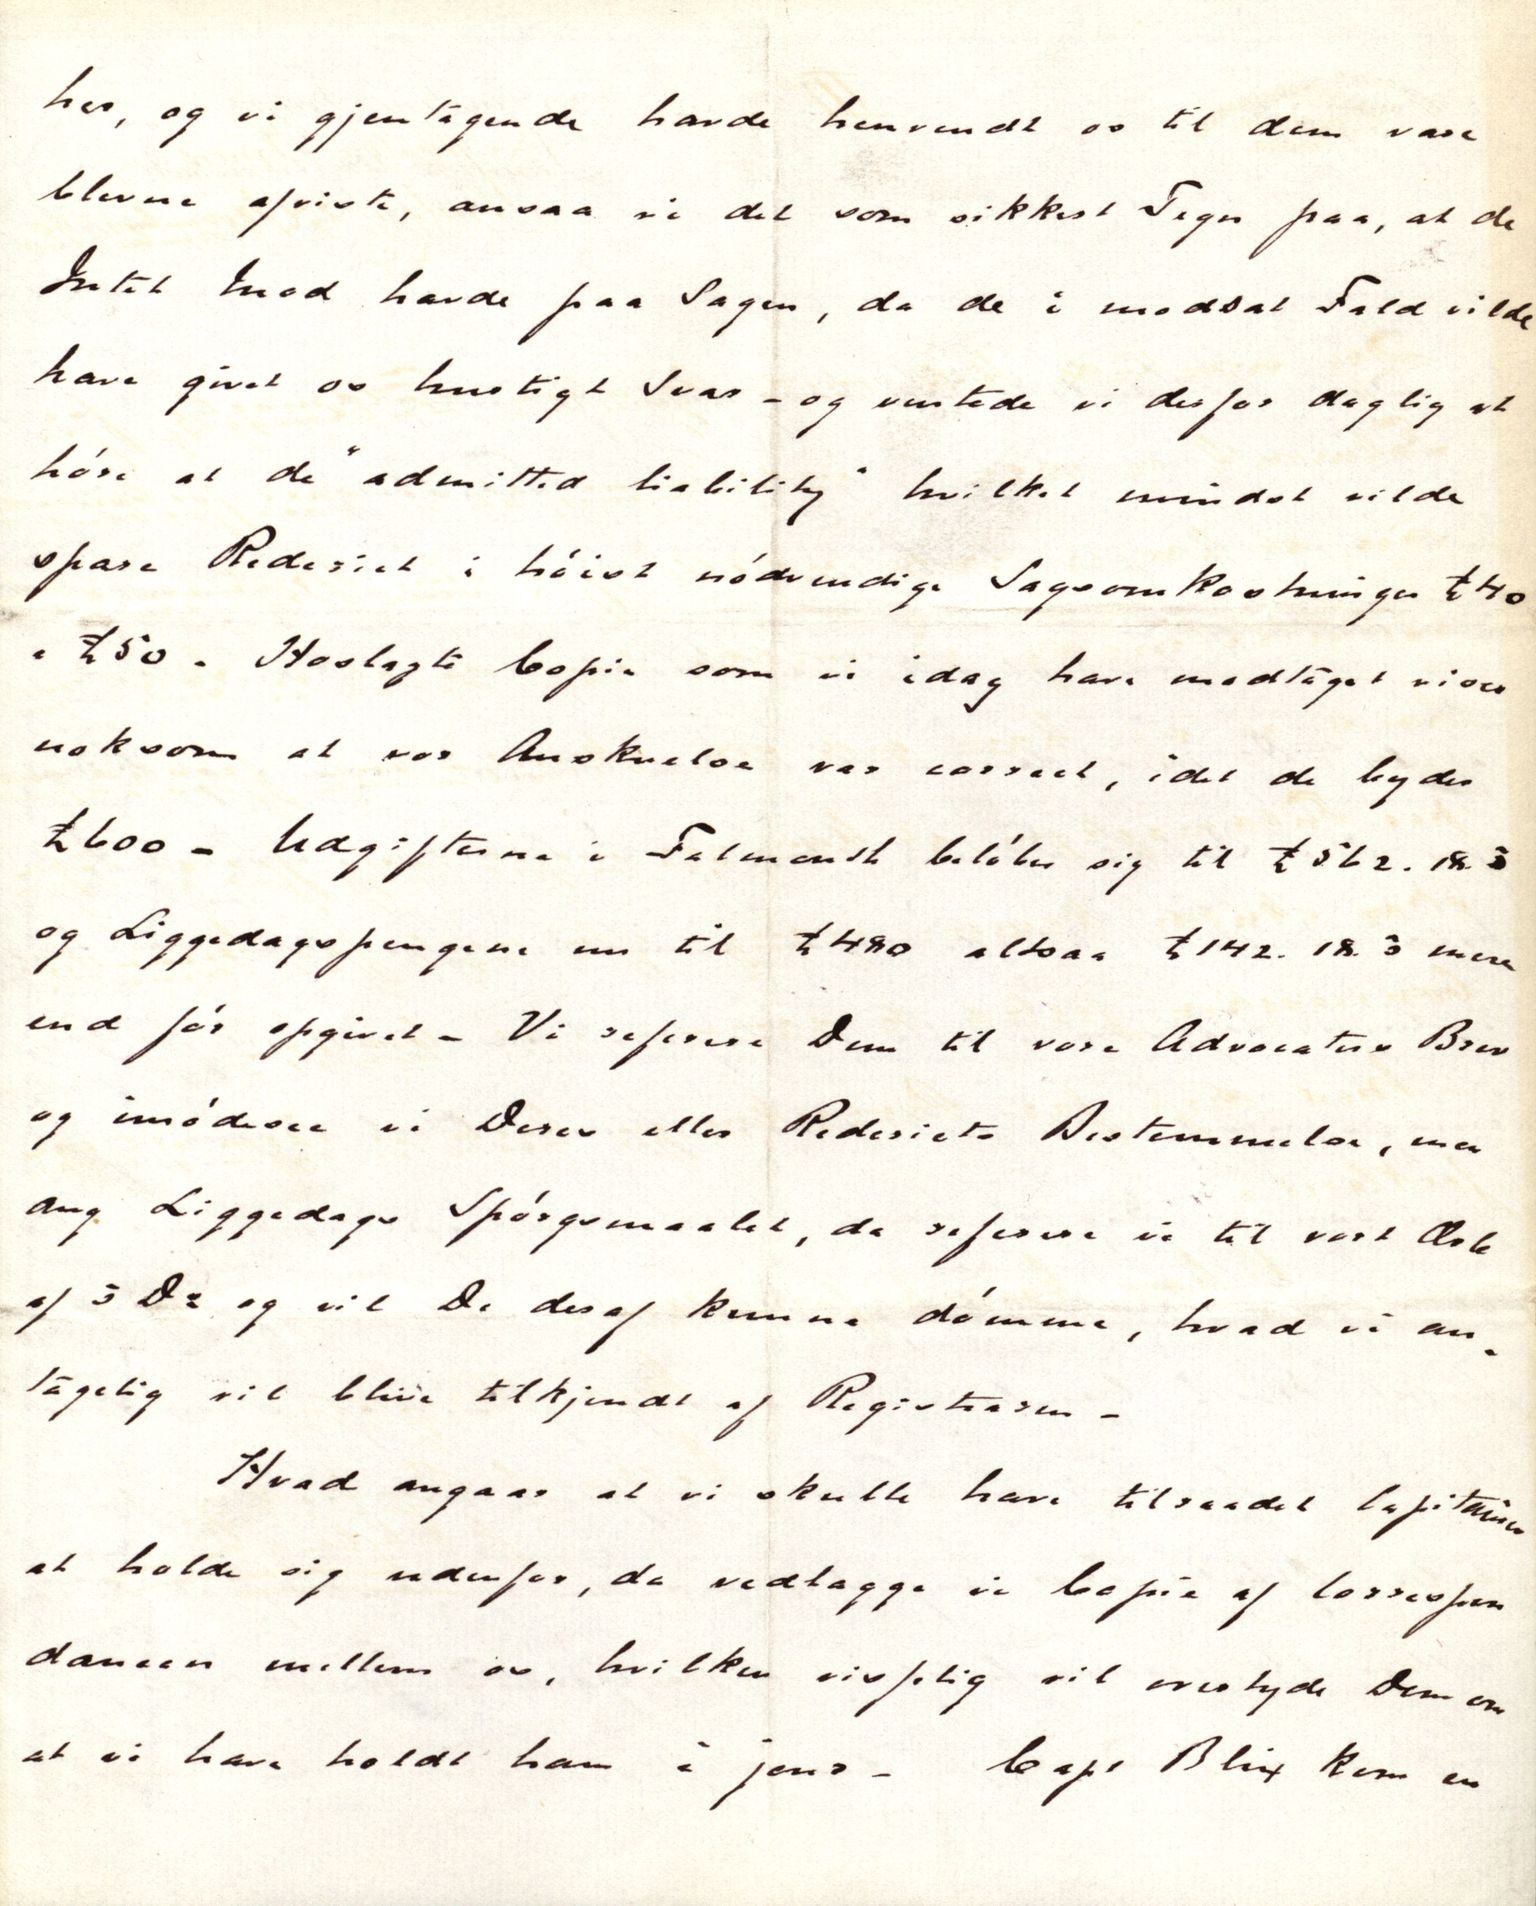 her, og vi gjentagende havde henvendt os til dem vare
blevne afviste, ansaa vi det som sikkert Tegn paa, at de
Intet Mod havde paa Sagen, da de i modsat Fald vilde
have givet os hurtigt Svar - og ventede vi derfor daglig at
høre at de "admitted liability" hvilket mindst vilde
spare Rederiet i høist nødvendige Sagsomkostninger £40
a £50. Hoslagte Copie som vi idag have modtaget viser
noksom at vor Anskuelse var correct, idet de byder
£600 - Udgifterne i Falmouth beløber sig til £562. 18. 5
og Liggedagspengene nu til £480 altsaa £142. 18. 5 mere
end før opgivet - Vi referere Dem til vore Advocaters Brev
og imødesee vi Deres eller Rederiets Bestemmelse, men
ang Liggedags Spørgsmaalet, da referere vi til vort Ærb
af 5 Ds og vil De deraf kunne dømme, hvad vi an-
tagelig vil blive tilkjendt af Registraren -
Hvad angaar at vi skulle have tilraadet Capitainen
at holde sig udenfor, da vedlægge vi Copie af Correspon
dancen mellem os, hvilken visselig vil overtyde Dem om
at vi have holdt ham i jour - Capt Blix kom en